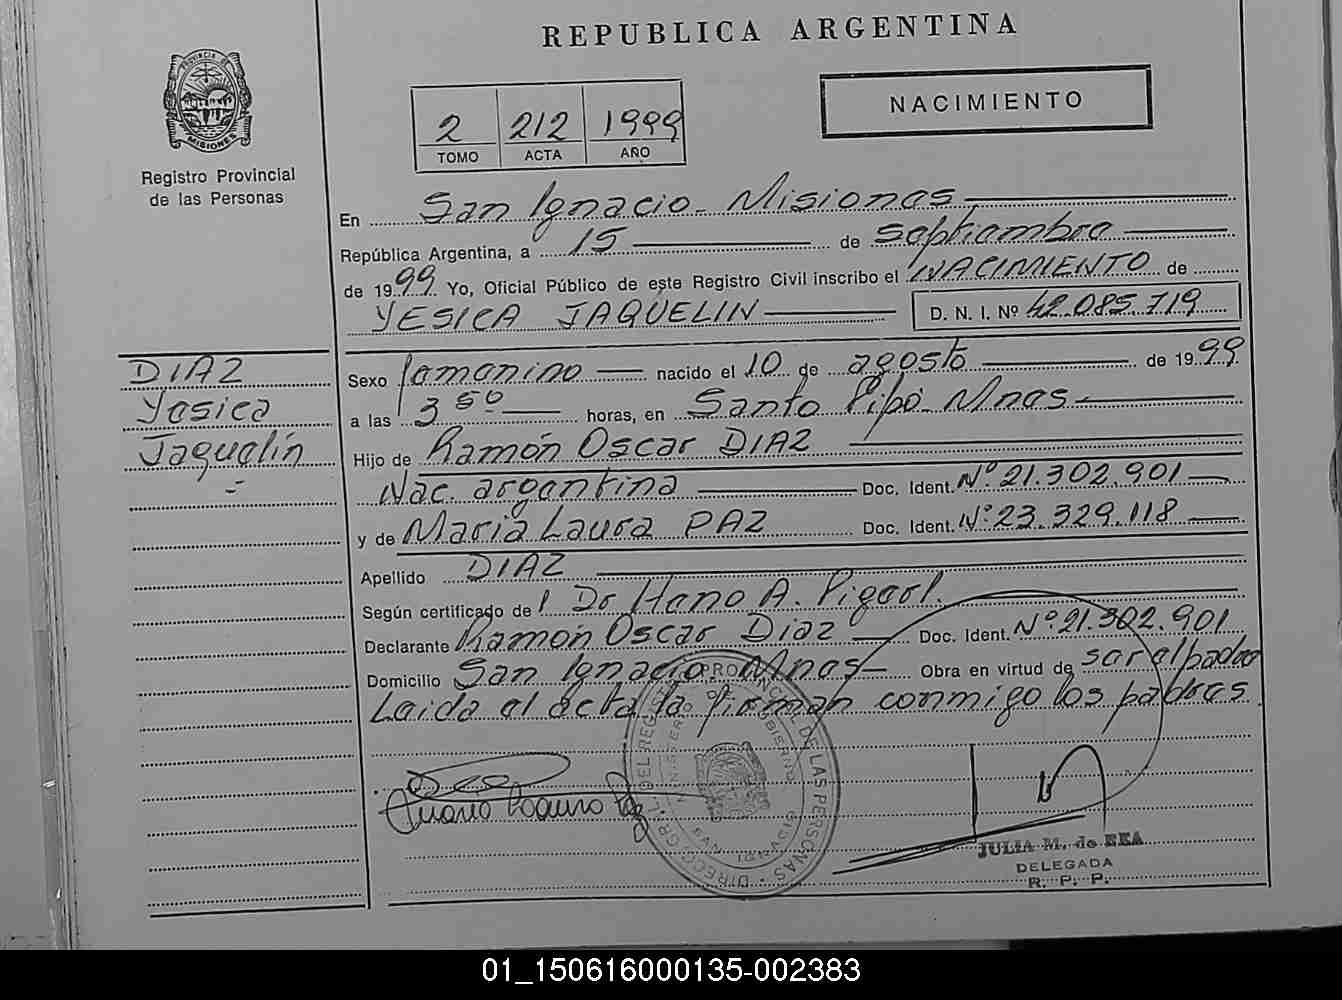 REPUBLICA ARGENTINA
PROVINCIA DE MISIONES
Registro Provincial
de las Personas
2 212 1999
TOMO ACTA AÑO
NACIMIENTO
En San Ignacio - Misiones
República Argentina, a 15 de septiembre
de 1999 Yo, Oficial Público de este Registro Civil inscribo el NACIMIENTO de
YESICA JAQUELIN D. N. I. Nº 42.085.719
DIAZ
Yesica
Jaquelín
Sexo femenino nacido el 10 de agosto de 1999
a las 3 50 horas, en Santo Pipó - Mnes -
Hijo de Ramón Oscar DIAZ
Nac. argentina Doc. Ident. Nº 21.302.901
y de María Laura PAZ Doc. Ident. Nº 23.329.118
Apellido DIAZ
Según certificado de l Dr A.
Declarante Ramón Oscar Diaz Doc. Ident. Nº 21.302.901
Domicilio San Ignacio Mnes Obra en virtud de ser el padre
Leida el acta la firman conmigo los padres.
DIRECC. GRL. DEL REGISTRO PROVINCIAL DE LAS PERSONAS
MINISTERIO DE GOBIERNO
SAN IGNACIO
JULIA M. de EEA
DELEGADA
R. P. P.
01_150616000135-002383